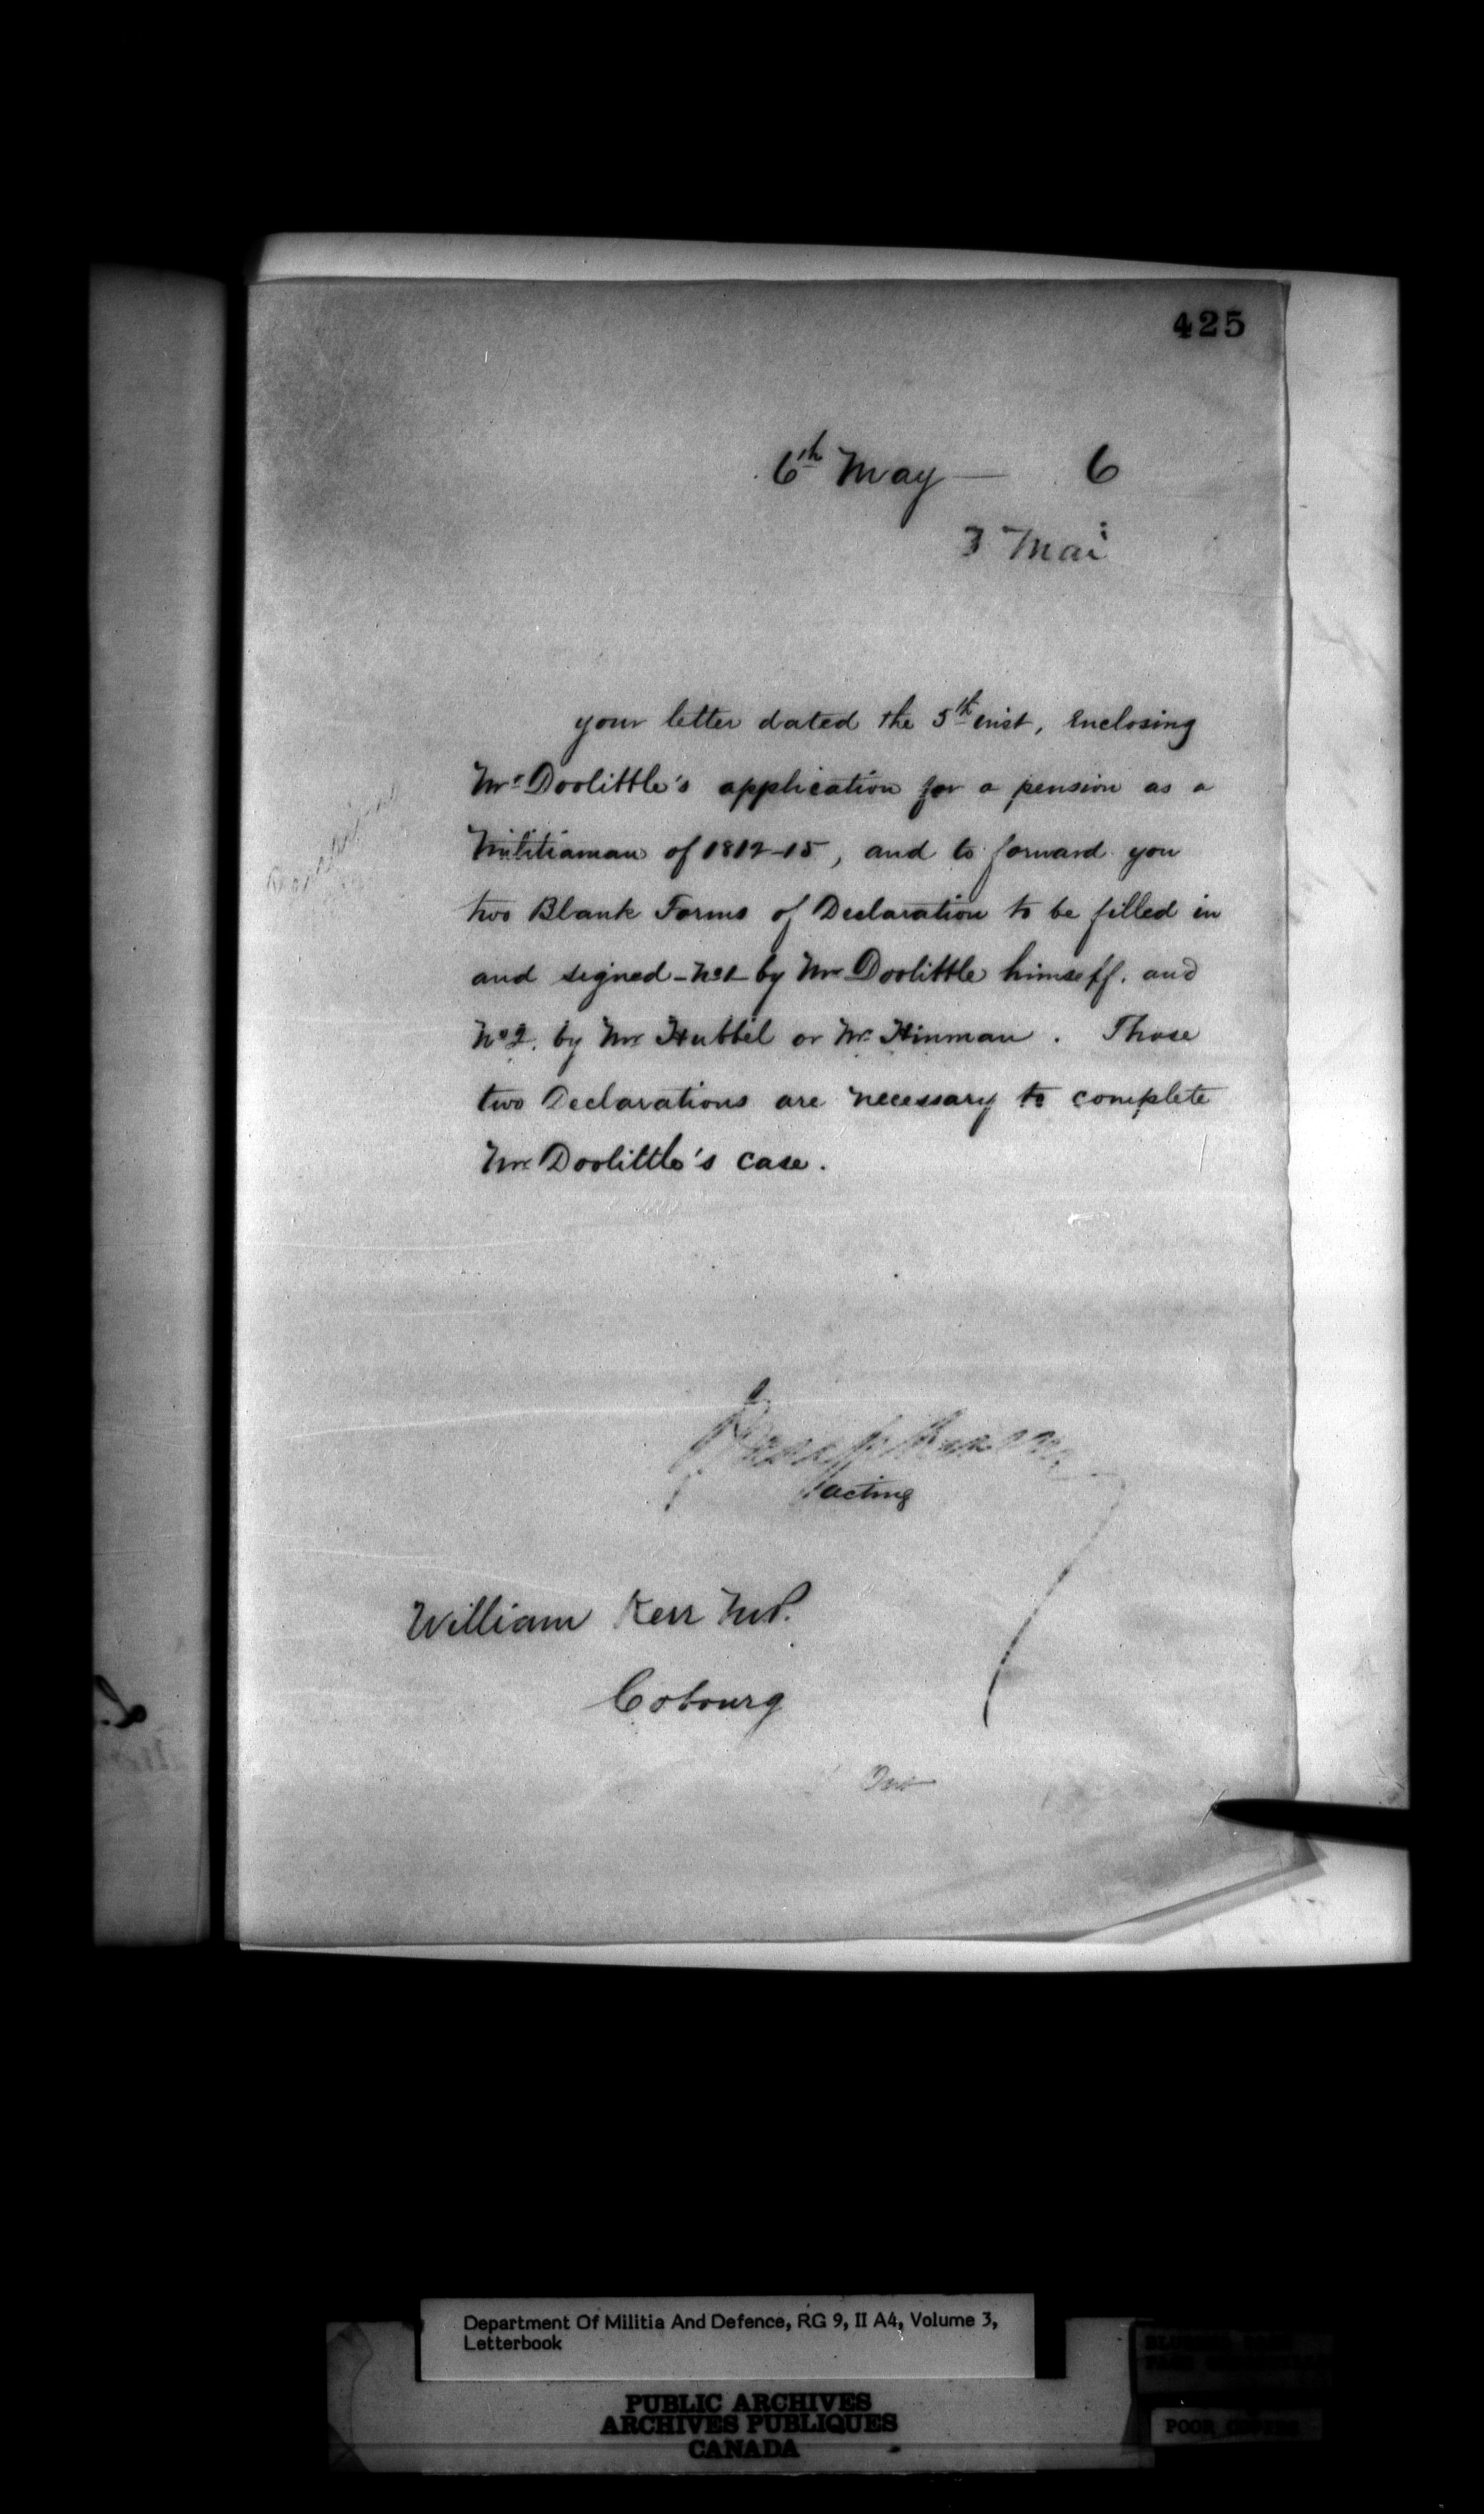 425
6th May — 6
3 Mai
your letter dated the 5th inst, enclosing
Mr Doolittle's application for a pension as a
Militiaman of 1812-15, and to forward you
two Blank Forms of Declaration to be filled in
and signed - No 1 - by Mr Doolittle himself. and
No 2. by Mr Hubbel or Mr Hinman. Those
two Declarations are necessary to complete
Mr Doolittle's case.
acting
William Kerr M.P.
Cobourg
Department Of Militia And Defence, RG 9, II A4, Volume 3,
Letterbook
PUBLIC ARCHIVES
ARCHIVES PUBLIQUES
CANADA
POOR